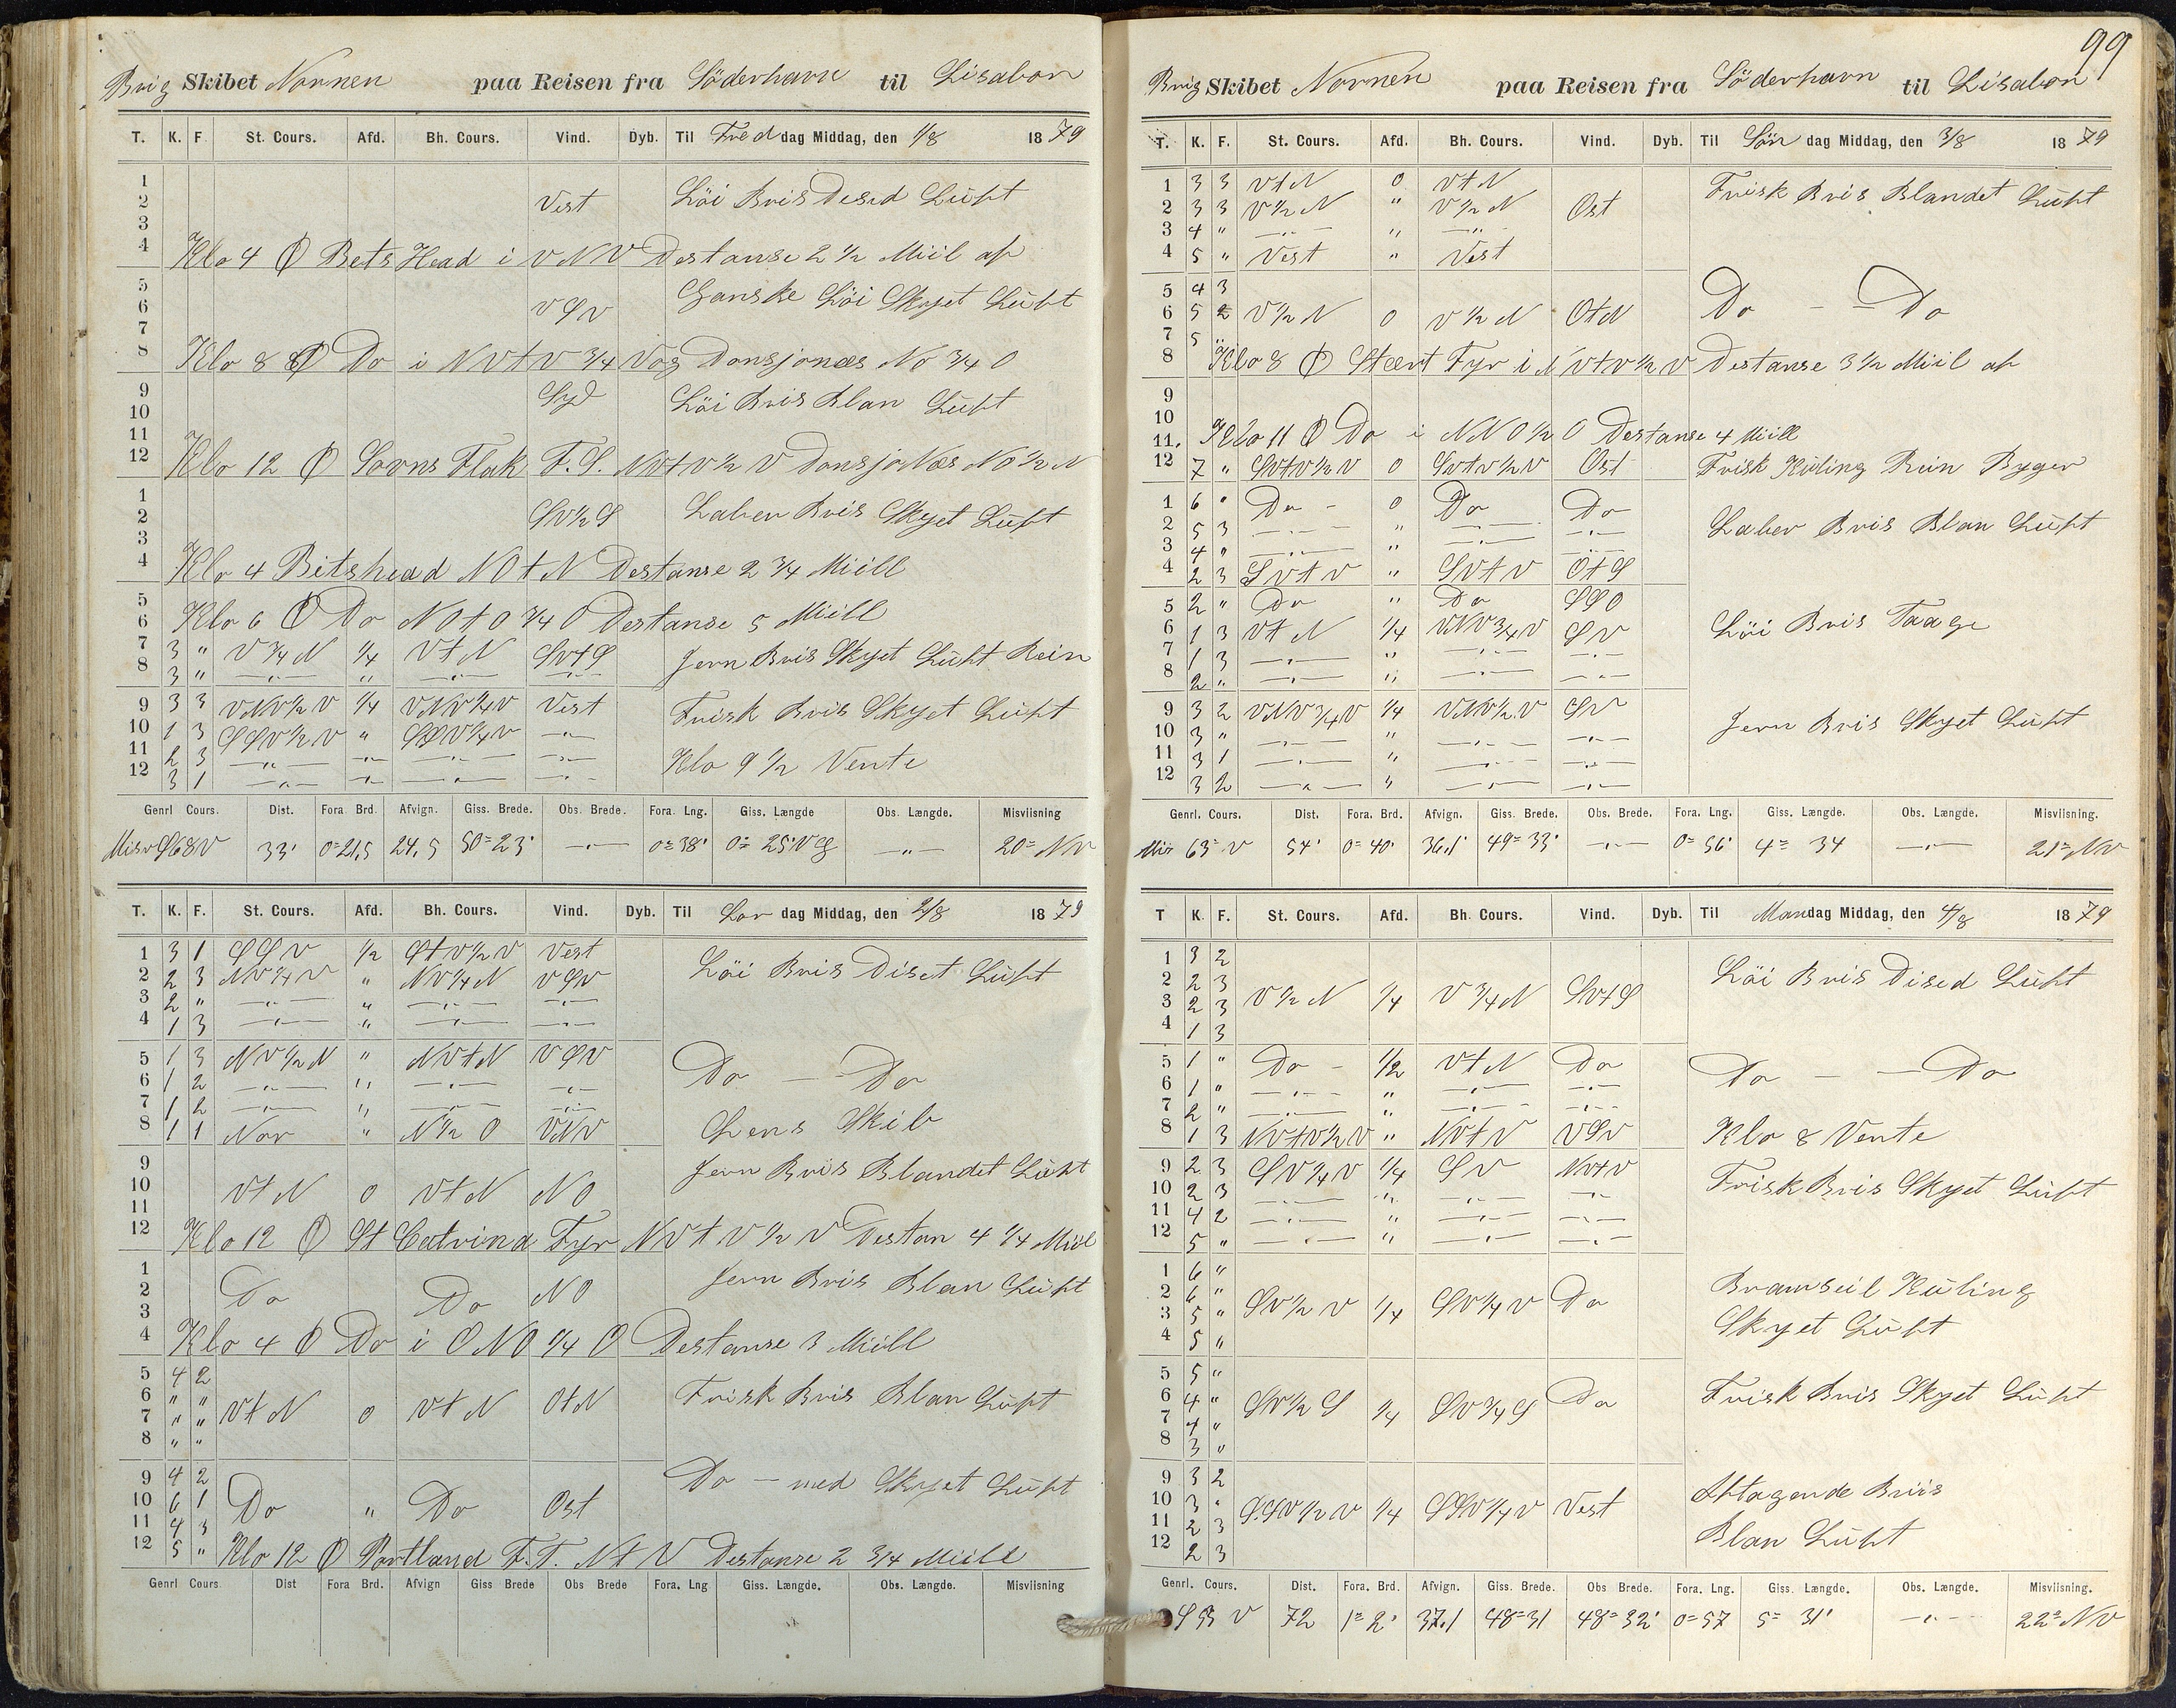 Brig Skibet Nornen paa Reisen fra Söderhavn til Lisabon
T. K. F. St. Cours. Afd. Bh. Cours. Vind. Dyb. Til Fred dag Middag, den 1/8 1879
1
2 Vest Löi Bris Desed Luft
3
4 Klo 4 Φ Bets Head i VNV Destanse 2 1/2 Miil af
5
6 VSV Ganske Löi Skyet Luft
7
8 Klo 8 Φ Do i NVtV 3/4 V og Donsjonæs No 3/4 O
9 Syd
10 Löi Bris Blan Luft
11
12 Klo 12 Φ Sovns Flak F.S. NVtV 1/2 V Donsjonæs NO 1/2 N
1
2 SV 1/2 S Laber Bris Skyet Luft
3
4 Klo 4 Bitshead NOtN Destanse 2 3/4 Miill
5
6 Klo 6 Φ Do NOtO 3/4 O Destanse 5 Miill
7 3 " V 3/4 N 1/4 VtN SVtS Jevn Bris Skyet Luft Rein
8 3 " —"— " —"— —"—
9 3 3 VNV 1/2 V 1/4 VNV 1/4 V Vest Frisk Bris Skyet Luft
10 1 3 SSV 1/2 V " SSV 1/4 V —"—
11 2 3 —"— —"— —"— —"— Klo 9 1/2 Vente
12 3 1 —"— —"— —"— —"—
Genrl Cours. Dist. Fora. Brd. Afvign. Giss. Brede. Obs. Brede. Fora. Lng. Giss. Længde Obs. Længde. Misviisning
Misv S68V 33' 0=21,5 24,5 50=23' —"— 0=38' 0=25' Vg —"— 20=NV
T. K. F. St. Cours. Afd. Bh. Cours. Vind. Dyb. Til Lör dag Middag, den 2/8 1879
1 3 1 SSV 1/2 StV 1/2 V Vest
2 2 3 NV 1/4 V " NV 1/4 N VSV Löi Bris Diset Luft
3 2 " —"— " —"— —"—
4 1 3 —"— " —"— —"—
5 1 3 NV 1/2 N " NVtN VSV
6 1 2 —"— " —"— —"— Do — Do
7 1 2 —"— " —"— —"—
8 1 1 Nor " N 1/2 O VNV Lens Skib
9 Jevn Bris Blandet Luft
10 VtN 0 VtN NO
11
12 Klo 12 Φ St Catrina Fyr NVtV 1/2 V Destan 4 1/4 Miil
1 Jevn Bris Blan Luft
2 Do Do NO
3
4 Klo 4 Φ Do i ONO 1/4 O Destanse 3 Miill
5 4 2
6 " " VtN 0 VtN OtN Frisk Bris Blan Luft
7 " "
8 " "
9 4 2 Do — med Skyet Luft
10 6 1 Do " Do Ost
11 4 3
12 5 " Klo 12 Φ Portland F.T. NtV Destanse 2 3/4 Miill
Genrl Cours. Dist Fora Brd. Afvign Giss Brede Obs Brede Fora. Lng Giss. Længde. Obs. Længde. Misviisning
99
Brig Skibet Nornen paa Reisen fra Söderhavn til Lisabon
T. K. F. St. Cours. Afd. Bh. Cours. Vind. Dyb. Til Sön dag Middag, den 3/8 1879
1 3 3 VtN 0 VtN Frisk Bris Blandet Luft
2 3 3 V 1/2 N " V 1/2 N Ost
3 4 " —"— " —"—
4 5 " Vest " Vest
5 4 3
6 5 2 V 1/2 N 0 V 1/2 N OtN Do — Do
7 5 "
8 Klo 8 Φ Stært Fyr i NVtV 1/2 V Destanse 3 1/2 Miil af
9
10
11. Klo 11 Φ Do i NNO 1/2 O Destanse 4 Miill
12 7 " SVtV 1/2 V 0 SVtV 1/2 V Ost Frisk Kuling Rein Byger
1 6 " Do — 0 Do Do
2 5 3 —"— " —"— —"— Laber Bris Blan Luft
3 4 " —"— " —"— —"—
4 2 3 SVtV " SVtV OtS
5 2 " Do " Do SSO
6 1 3 VtN 1/4 VNV 3/4 V SV Löi Bris Taage
7 1 3 —"— " —"— —"—
8 2 " —"— " —"— —"—
9 3 2 VNV 3/4 V 1/4 VNV 1/2 V SV
10 3 " —"— " —"— —"— Jevn Bris Skyet Luft
11 3 1 —"— " —"— —"—
12 3 2 —"— " —"— —"—
Genrl. Cours. Dist. Fora. Brd. Afvign. Giss. Brede. Obs. Brede. Fora. Lng. Giss. Længde. Obs. Længde. Misviisning.
Mis 63=V 54' 0=40' 36,1 49=33' —"— 0=56' 4=34 —"— 21=NV
T K. F. St. Cours. Afd. Bh. Cours. Vind. Dyb. Til Mandag Middag, den 4/8 1879
1 3 2
2 2 3 Löi Bris Dised Luft
3 2 3 V 1/2 N 1/4 V 3/4 N SVtS
4 1 3
5 1 " Do — 1/2 VtN Do
6 1 " —"— " —"— —"— Do — — Do
7 2 " —"— " —"— —"—
8 1 3 NVtV 1/2 V " NVtV VSV Klo 8 Vente
9 2 3 SV 1/4 V 1/4 SV NVtV
10 2 3 —"— " —"— —"— Frisk Bris Skyet Luft
11 4 2 —"— " —"— —"—
12 5 " —"— " —"— —"—
1 6 "
2 6 " Bramseil Kuling
3 5 " SV 1/2 V 1/4 SV 1/4 V Do
4 5 " Skyet Luft
5 5 "
6 4 " SV 1/2 S 1/4 SV 3/4 S Do Frisk Bris Skyet Luft
7 4 "
8 3 "
9 3 2
10 3 " SSV 1/2 V 1/4 SSV 1/4 V Vest Aftagende Briis
11 2 3
12 2 3 Blan Luft
Genrl. Cours. Dist. Fora. Brd. Afvign. Giss. Brede. Obs Brede. Fora. Lng. Giss. Længde. Obs. Længde. Misviisning.
S V 72 1=2' 37,1 48=31 48=32' 0=57 5=31' —"— 22=NV